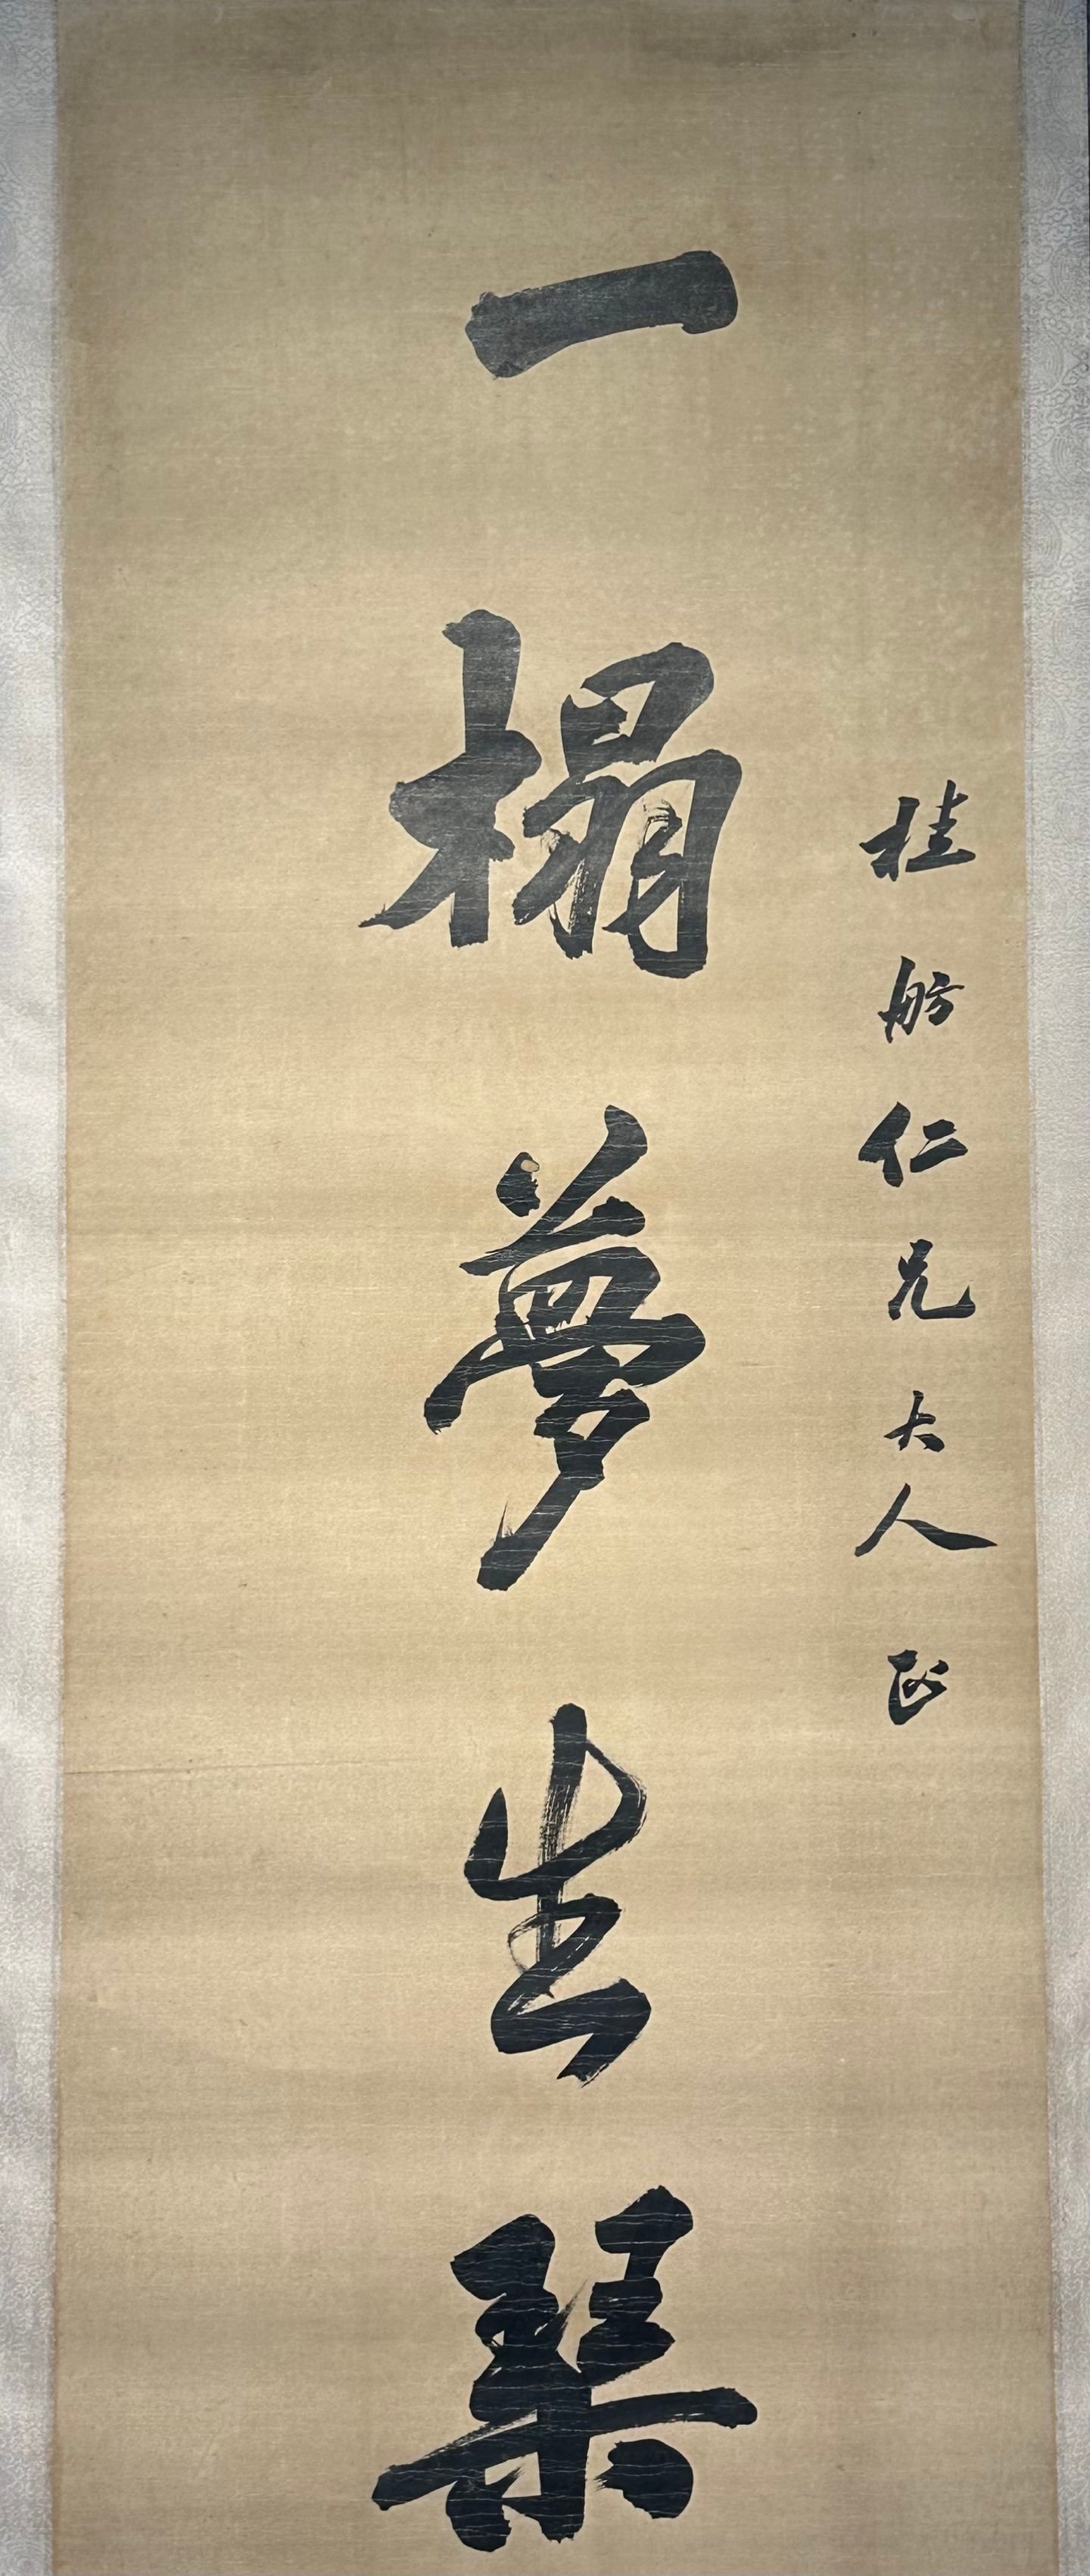 桂舫仁兄大人正
一榻夢生琹